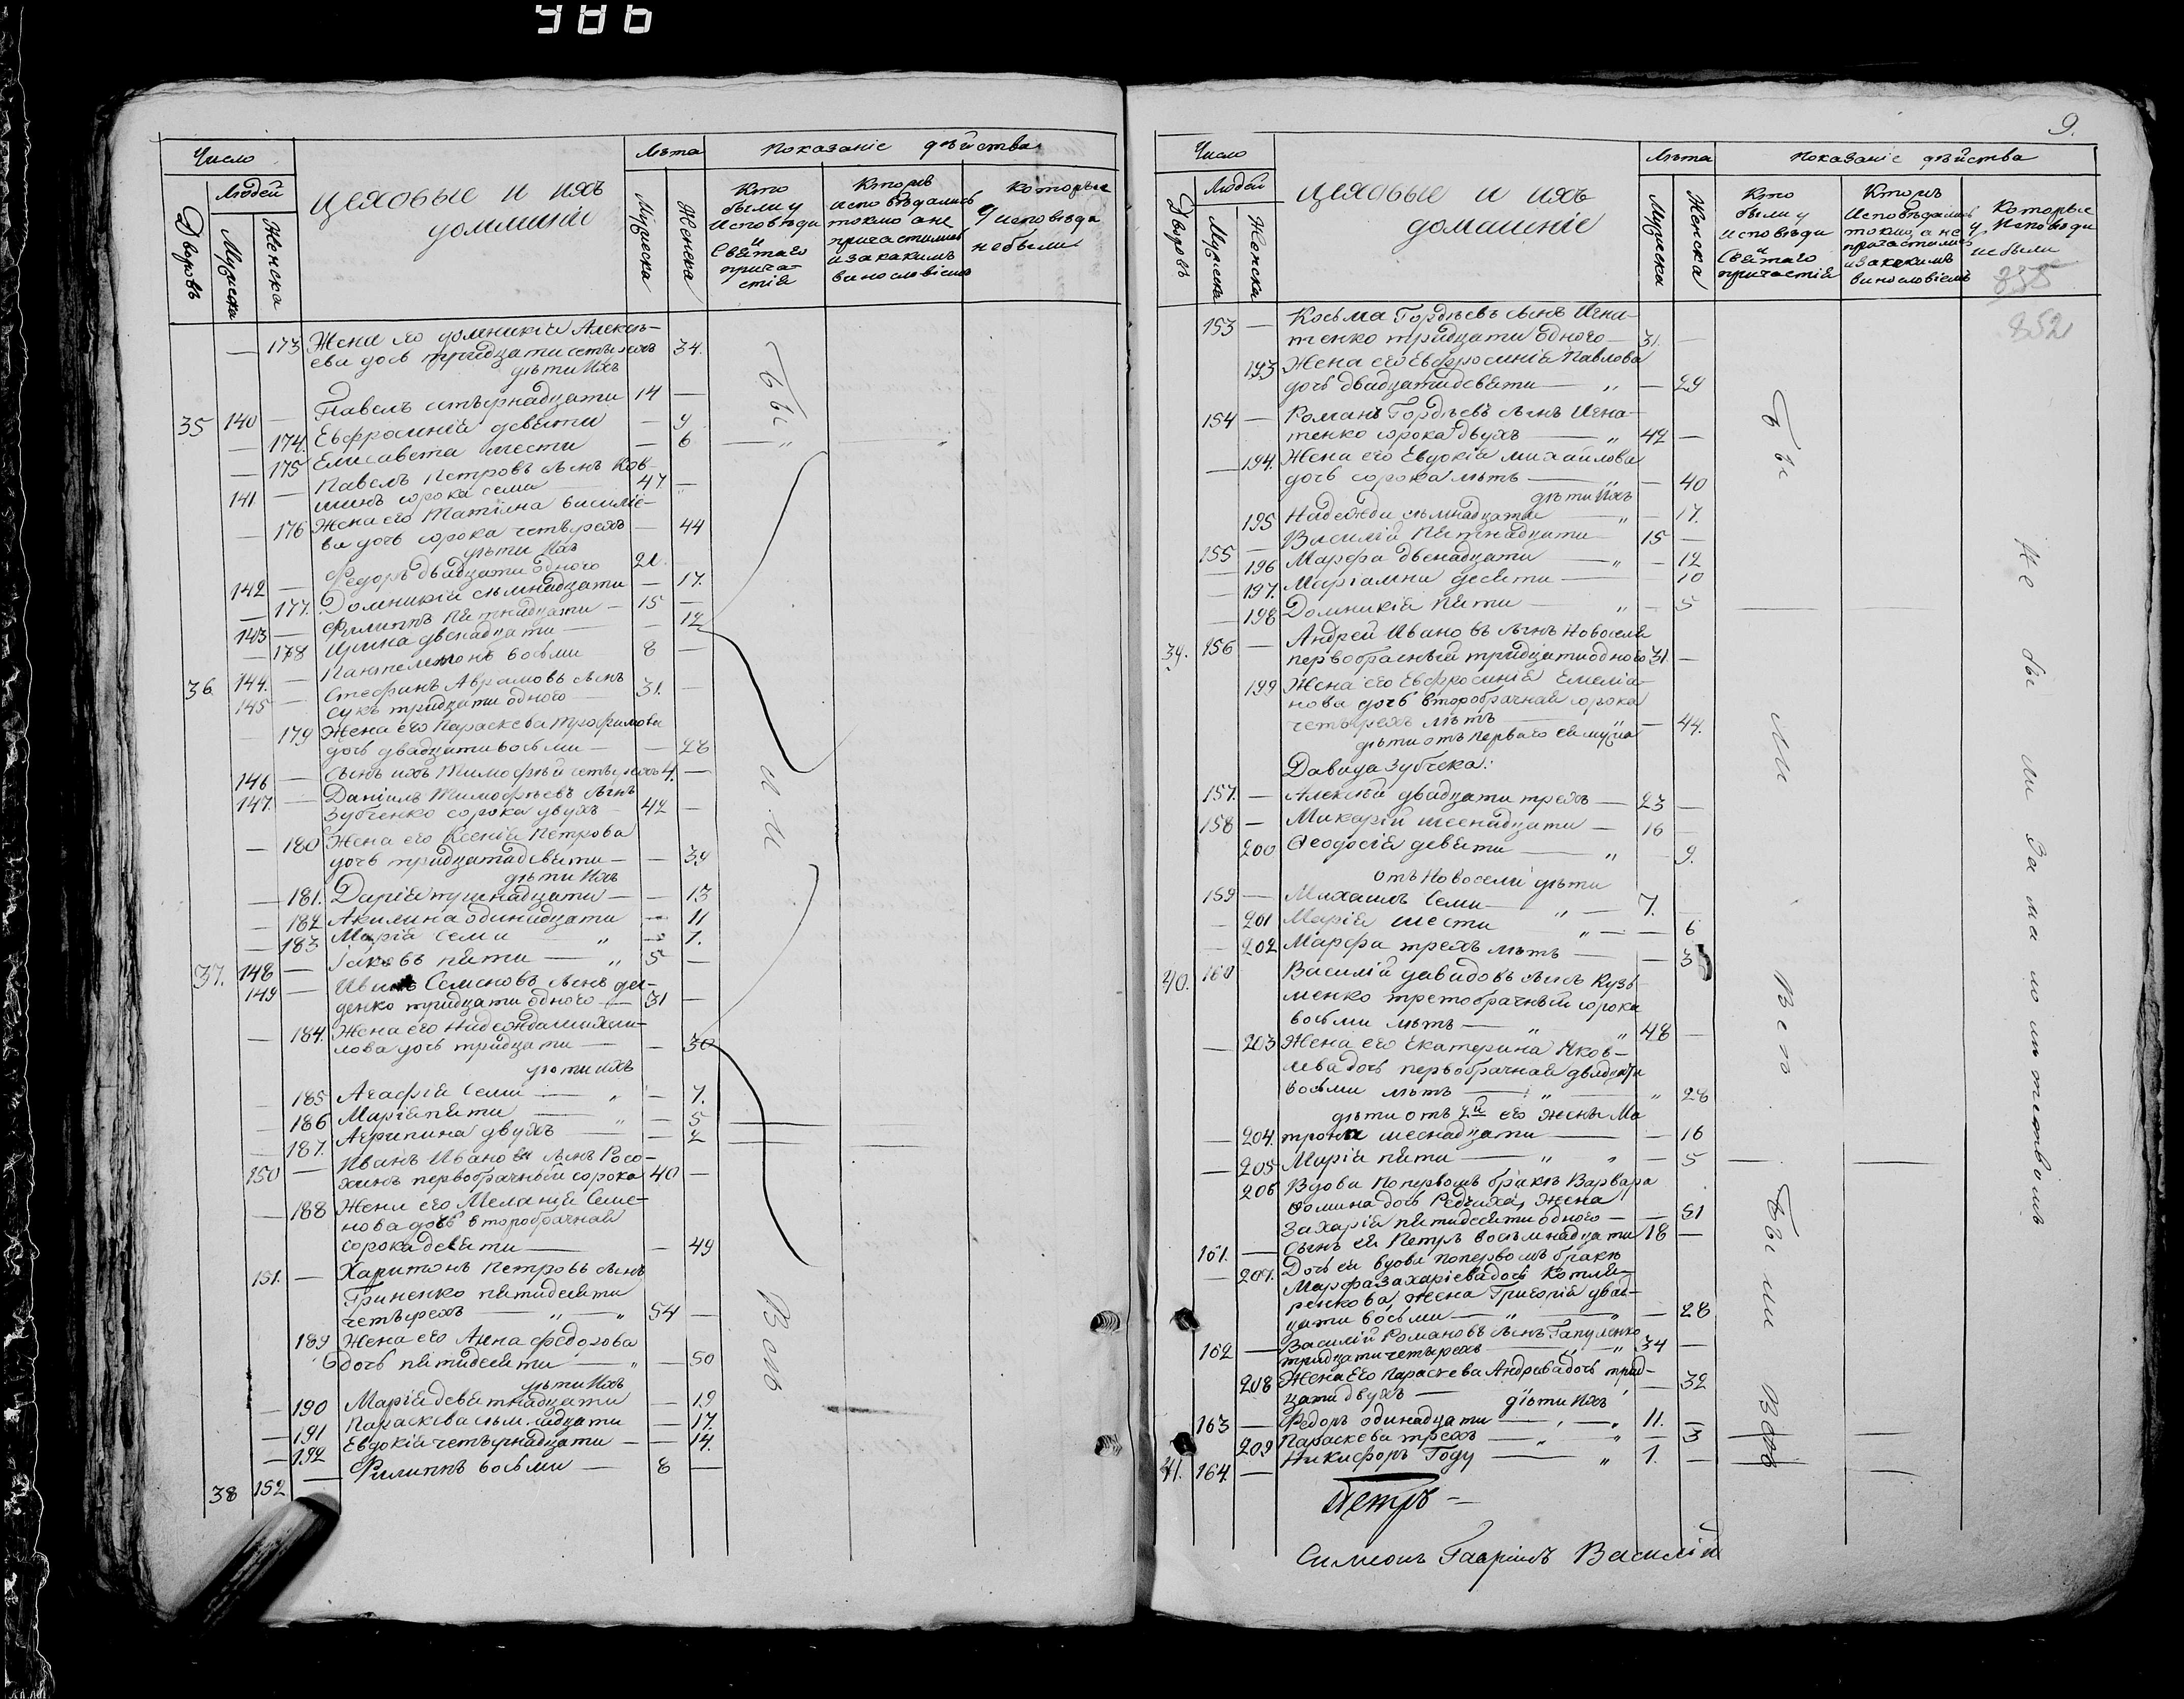 986
Число
Людей
Дворовъ
Мужеска
Женска
Цеховые и ихъ
домашніе
Лѣта
Мужеска
Женска
Показаніе дѣйства
Кто
были у
исповѣди
и
Святаго
прича-
стія
Кторіе
исповѣдались
токмо а не
причастились
и за какимъ
винословіемъ
Которые
у исповѣди
небыли
173 Жена его Домникія Алексѣ-
ева дочь тридцати четырехъ 34.
дѣти Ихъ
35 140 — Павелъ четырнадцати 14 —
— 174. Евфросинія девяти — 9
— 175 Елисавета шести — 6
141 — Павелъ Петровъ сынъ Ков-
шинъ сорока семи 47 —
— 176 Жена его Татіяна Василіе-
ва дочь сорока четырехъ — 44
дѣти Ихъ
142 — Федоръ двадцати одного 21.
— 177. Домникія семнадцати — 17.
143 — Филиппъ пятнадцати — 15 —
— 178 Ирина двенадцати — — 12
36 144. — Пантелимонъ восьми 8 —
145 — Стефанъ Аврамовъ сынъ
Сукъ тридцати одного 31. —
179 Жена его Параскева Трофимова
дочь двадцати восьми — — 28
146 — Сынъ ихъ Тимофѣй четырехъ 4. —
147. — Даніилъ Тимофѣевъ сынъ
Зубченко сорока двухъ 42 —
— 180 Жена его Ксенія Петрова
дочь тридцати девяти — — 39
дѣти Ихъ
— 181. Дарія тринадцати — — 13
— 182 Акилина одинадцати — 11
— 183 Марія Семи — „ — 7.
37. 148 — Іаковъ пяти — „ 5 —
149 — Иванъ Семеновъ сынъ
денко тридцати одного — 31 —
— 184. Жена его Надежда Михаи-
лова дочь тридцати — — 30
дѣти ихъ
— 185 Агафія Семи — „ — 7.
— 186 Марія пяти — „ — 5
— 187. Агрипина двухъ — — 2
150 — Иванъ Ивановъ сынъ Росо-
хинъ первобрачный сорока 40 —
— 188 Жена его Меланія Семе-
нова дочь второбрачная
сорока девяти — — 49
151. — Харитонъ Петровъ сынъ
Гриненко пятидесяти
четырехъ — „ — „ 54 —
189 Жена его Анна Федорова
дочь пятидесяти — „ — 50
дѣти Ихъ
— 190 Марія девятнадцати — 19
— 191 Параскева семнадцати — 17.
— 192 Евдокія четырнадцати — — 14.
38 152 — Филиппъ восьми — 8 —
Бы
ли
Всѣ
9.
Число
Людей
Дворовъ
Мужеска
Женска
Цеховые и ихъ
домашніе
Лѣта
Мужеска
Женска
Показаніе дѣйства
Кто
были у
исповѣди
и
Святаго
причастія
Ктоихъ
Исповѣдались
токмо, а не
причастились
и за какимъ
винословіемъ
Которые
у Исповѣди
небыли
835
852
153 — Косьма Гордѣевъ сынъ Игна-
тенко тридцати одного 31. —
193 Жена его Евфросинія Павлова
дочь двадцати девяти — „ — 29
154 — Романъ Гордѣевъ сынъ Игна-
тенко сорока двухъ — „ 42 —
— 194. Жена его Евдокія Михайлова
дочь сорока лѣтъ — „ — 40
дѣти Ихъ
195 Надежда семнадцати „ — 17.
155 — Василій Пятнадцати 15 —
— 196 Марфа двенадцати — „ — 12
— 197. Маріамна десяти — 10
— 198 Домникія Пяти — „ — 5
39. 156 — Андрей Ивановъ сынъ Новоселя
первобрачный тридцати одного 31. —
199 Жена его Евфросинія Емелія-
нова дочь второбрачная сорока
четырехъ лѣтъ — „ — 44.
дѣти отъ перваго ея мужа
Давида Зубчека:
157. — Алексѣй двадцати трехъ — 23 —
158 — Макарій шеснадцати — 16 —
200 Ѳеодосія девяти — „ — 9.
отъ Новосели дѣти
159 — Михаилъ Семи — „ — 7. —
— 201 Марія шести „ — — 6
— 202 Марфа трехъ лѣтъ — — 3
40. 160 Василій Давидовъ сынъ Кузь-
менко третобрачный сорока
восьми лѣтъ — „ „ 48 —
— 203 Жена его Екатерина Яков-
лева дочь первобрачная двадцати
восьми лѣтъ — „ — „ 28
дѣти отъ 2й его жены Ма
— 204. трона шеснадцати — — 16
— 205 Марія пяти — „ „ — 5
206 Вдова по первомъ бракѣ Варвара
Ѳомина дочь Редчиха, жена
Захарія пятидесяти одного — — 51
161. — Сынъ ея Петръ восьмнадцати 18 —
— 207. Дочь ея вдова по первомъ бракѣ
Марфа Захаріева дочь Котля-
ренкова, жена Григорія двад-
цати восьми — „ — „ — 28
162 — Василій Романовъ сынъ Гапуленко
тридцати четырехъ — „ — „ 34 —
208 Жена Его Параскева Андреева дочь трид-
цати двухъ — — 32
дѣти Ихъ
163 — Федоръ одинадцати — „ — „ 11. —
209 Параскева трехъ — „ „ — 3
41. 164. — Никифоръ Году — „ 1. —
Бы
ли
Всѣ
Были Всѣ
Не бы ли за малолѣтствомъ
Петръ —
Симеонъ Гавріилъ Василій